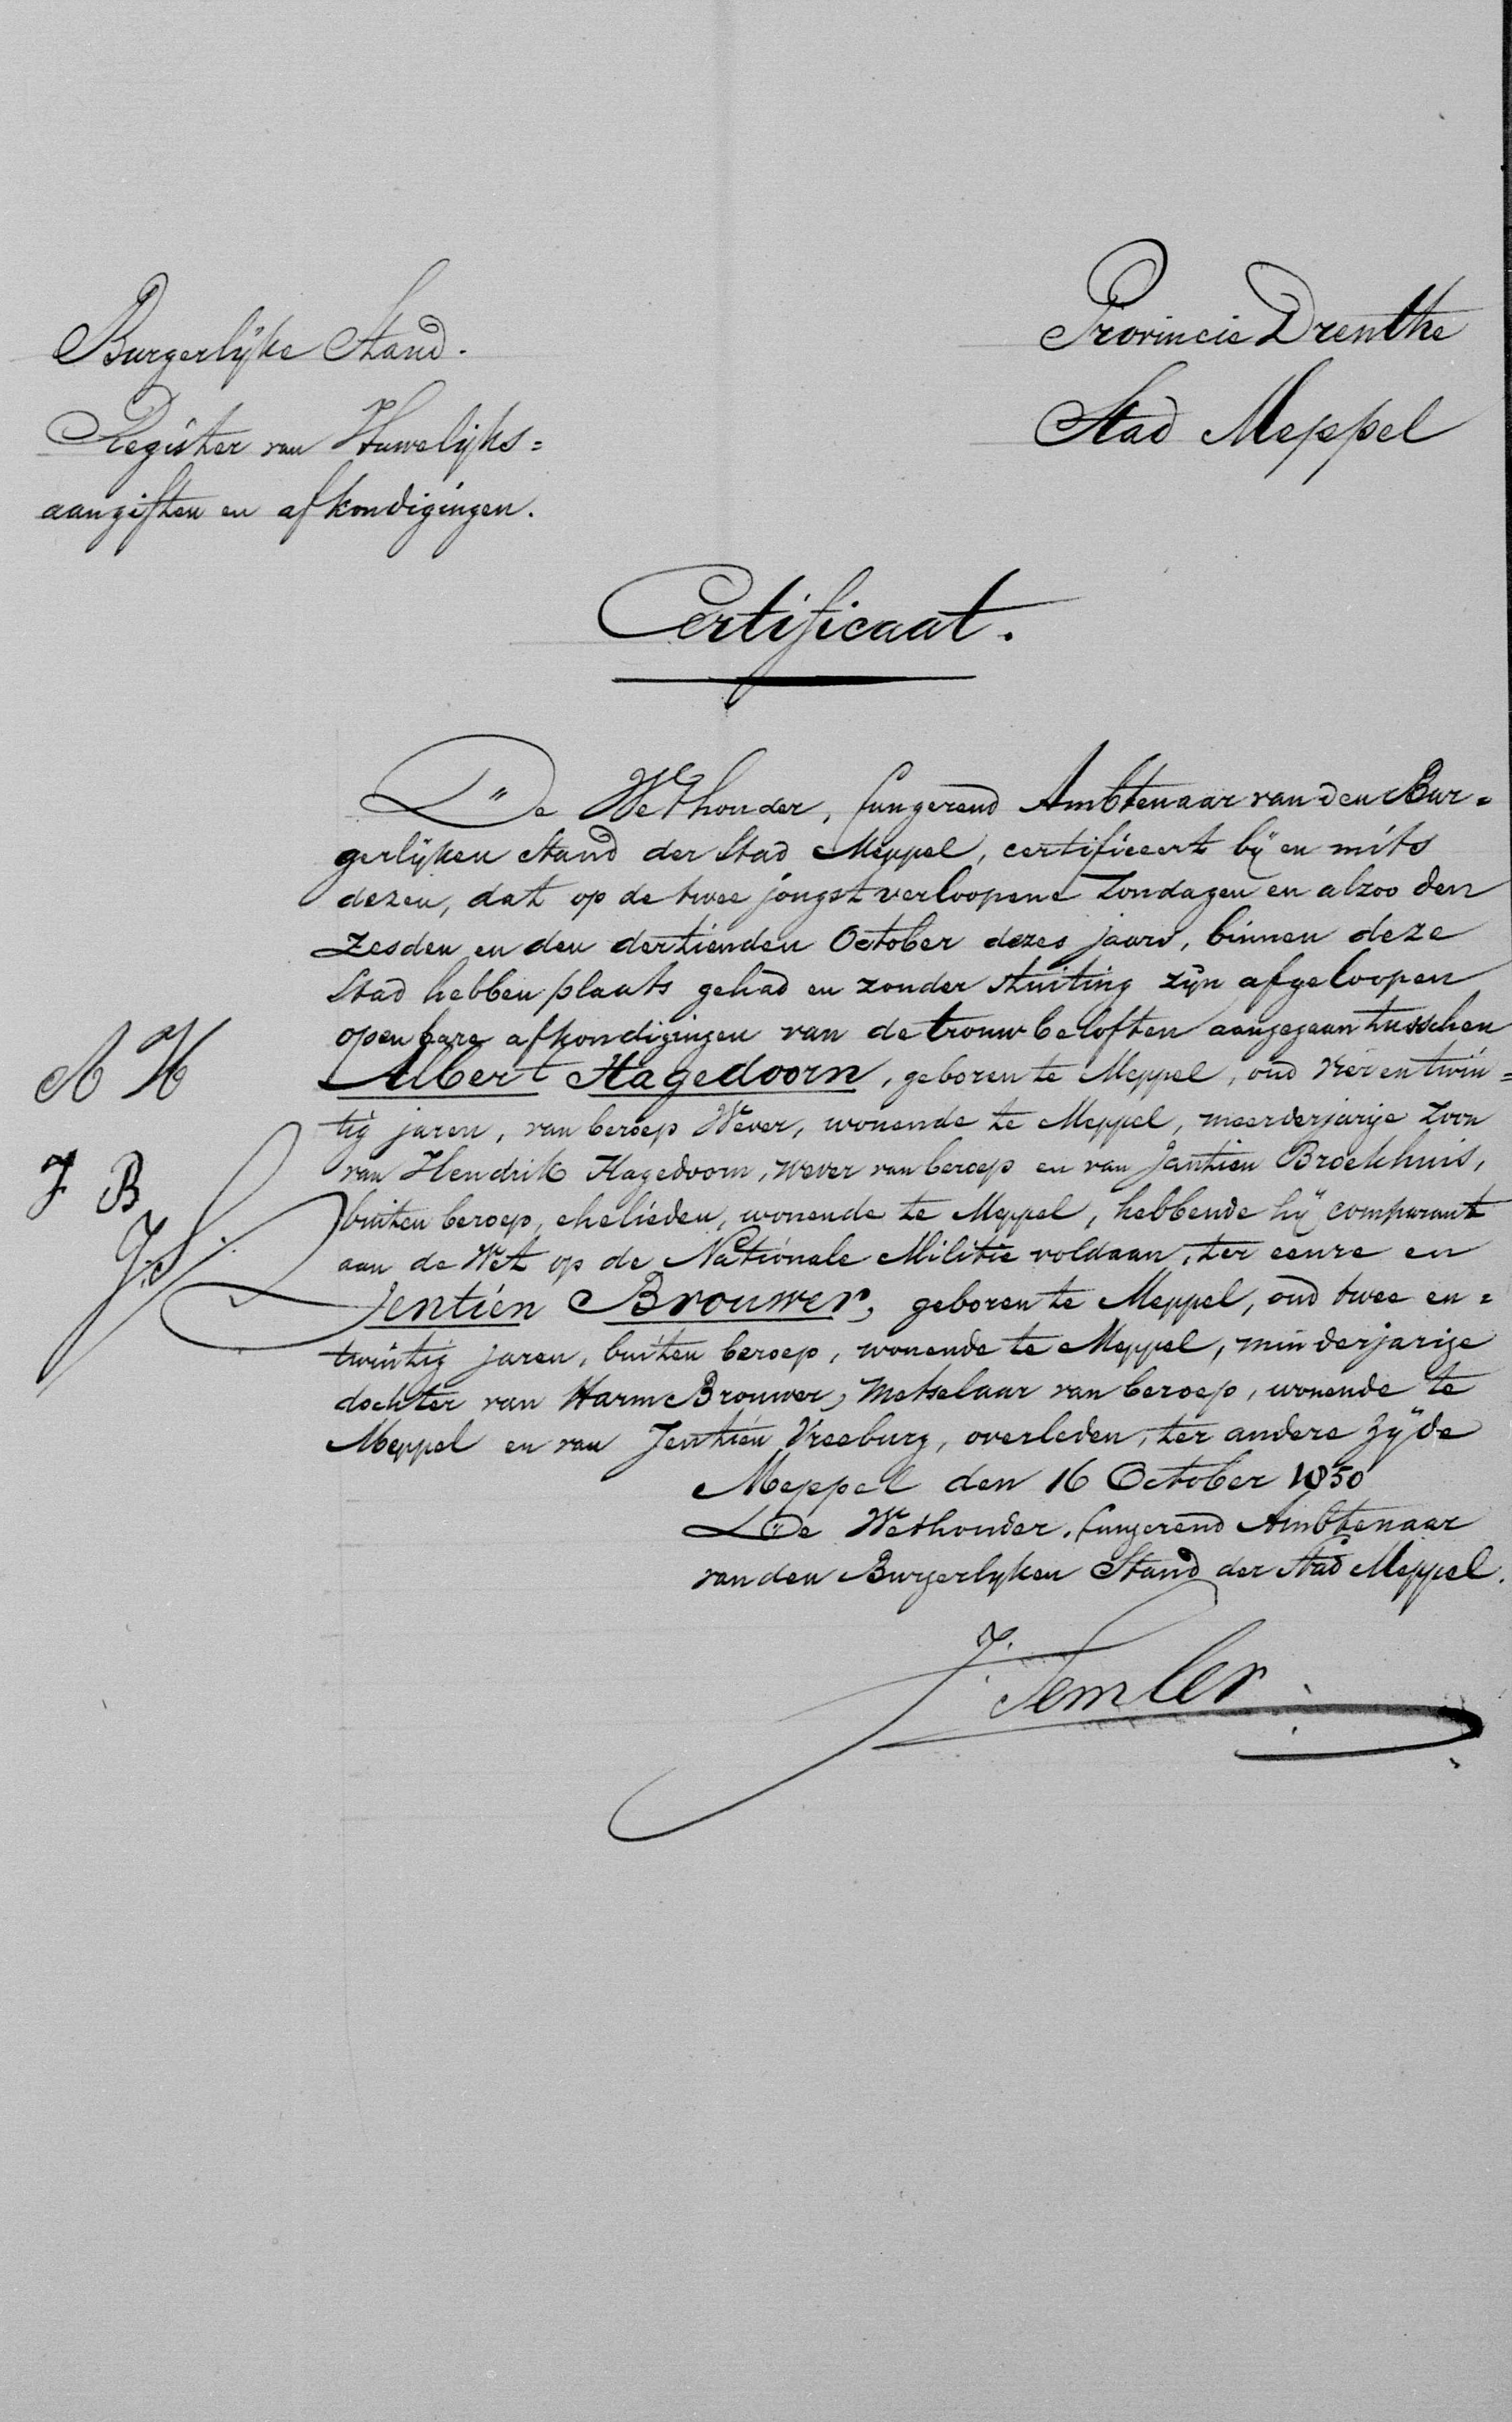 Burgerlijke Stand.
Register van Huwelijks=
aangiften en afkondigingen.
Provincie Drenthe
Stad Meppel
Certificaat.
De Wethouder, fungerend Ambtenaar van den Bur=
gerlijken Stand der Stad Meppel, certificeert bij en mits
dezen, dat op de twee jongst verloopene Zondagen en alzoo den
Zesden en den dertienden October dezes jaars, binnen deze
Stad hebben plaats gehad en zonder stuiting zijn afgeloopen
openbare afkondigingen van de trouwbeloften aangegaan tusschen
Albert Hagedoorn, geboren te Meppel, oud vier en twin=
tig jaren, van beroep Wever, wonende te Meppel, meerderjarige Zoon
van Hendrik Hagedoorn, wever van beroep en van Jantien Broekhuis,
buiten beroep, ehelieden, wonende te Meppel, hebbende hij comparant
aan de Wet op de Nationale Militie voldaan, ter eenre en
Jentien Brouwer, geboren te Meppel, oud twee en=
twintig jaren, buiten beroep, wonende te Meppel, minderjarige
dochter van Harm Brouwer, Metselaar van beroep, wonende te
Meppel en van Jentien Vreeburg, overleden, ter andere zijde
Meppel den 16 October 1850
De Wethouder, fungerend Ambtenaar
van den Burgerlijken Stand der Stad Meppel.
A H
J B
J. S.